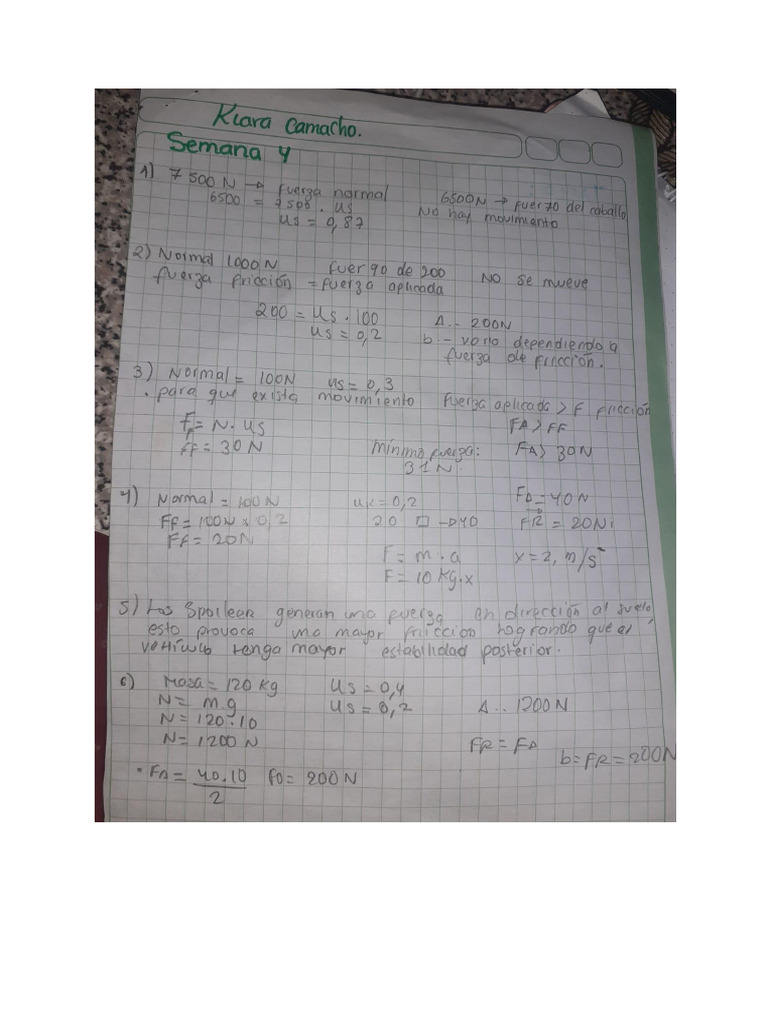 Kiara Camacho.
Semana 4
1) 7 500 N → fuerza normal 6500N → fuerzo del caballo
6500 = 7500 . us No hay movimiento
us = 0,87
2) Normal 1000 N fuerzo de 200 NO se mueve
fuerza fricción = fuerza aplicada
200 = us . 100 A.- 200N
us = 0,2 b.- vario dependiendo a
fuerza de fricción.
3) Normal = 100N us = 0,3
. para que exista movimiento fuerza aplicada > F fricción
F = N. us FA > FF
FF = 30 N mínima fuerza: FA > 30N
31N.
4) Normal = 100 N uk = 0,2 FA = 40N
Ff = 100N x 0,2 20 □ → 40 FR = 20N i
Ff = 20N
F = m . a x = 2, m/s
F = 10 kg . x
5) Los Spoileer generan una fuerza en dirección al suelo,
esto provoca una mayor fricción logrando que el
vehículo tenga mayor estabilidad posterior.
6) Masa = 120 kg us = 0,4
N = m.g us = 0,2 A.. 1200 N
N = 120.10
N = 1200 N FR = FA
b = FR = 200N
• FA = 40.10 / 2 fA = 200 N